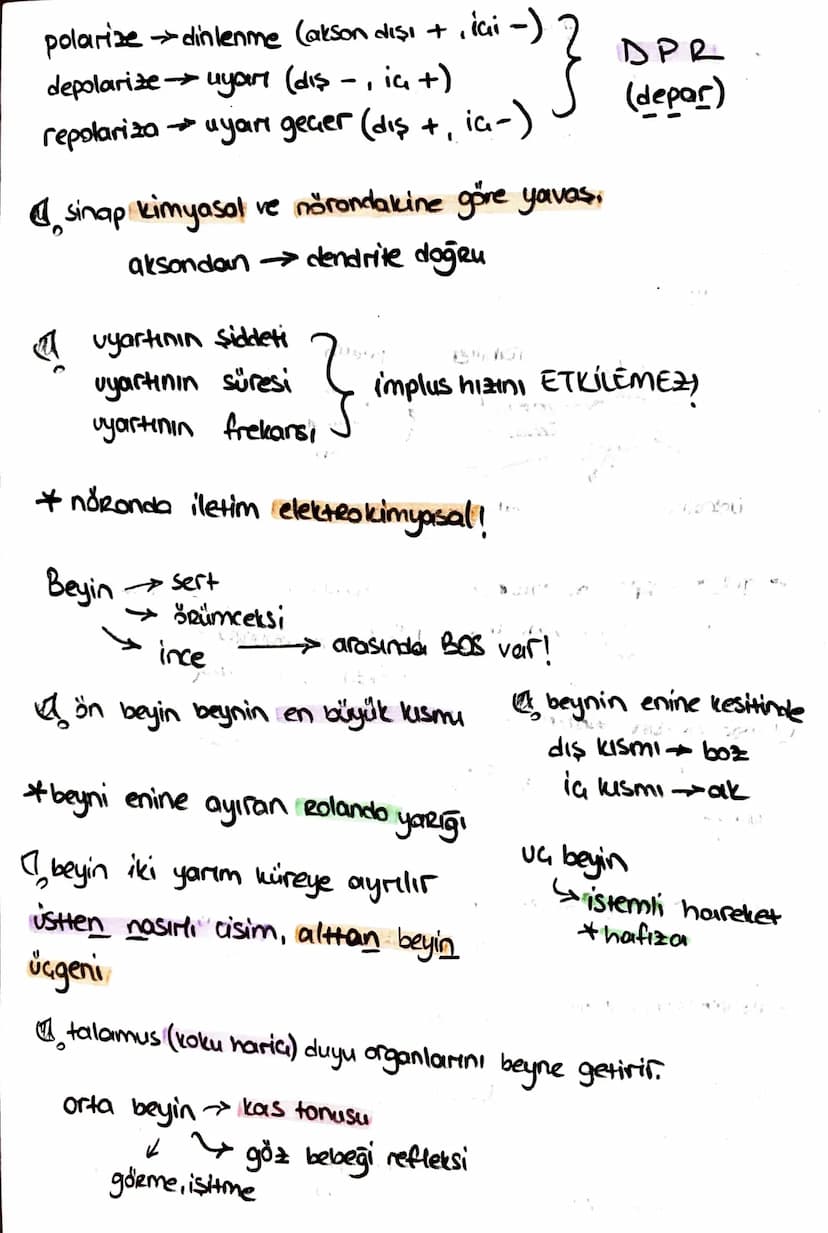 polarize → dinlenme (akson dışı +, içi -)
depolarize → uyarı (dış -, iç +)
repolariza → uyarı geçer (dış +, iç -)
DPR
(depar)
sinap kimyasal ve nörondakine göre yavaş.
aksondan → dendrite doğru
uyartının şiddeti
uyartının süresi
uyartının frekansı
implus hızını ETKİLEMEZ!
* nöronda iletim elektrokimyasal!
Beyin → sert
→ örümceksi
→ ince → arasında BOS var!
ön beyin beynin en büyük kısmı
beynin enine kesitinde
dış kısmı → boz
iç kısmı → ak
* beyni enine ayıran rolando yarığı
beyin iki yarım küreye ayrılır
üstten nasırlı cisim, alttan beyin
üçgeni
uç beyin
↳ istemli hareket
* hafıza
talamus (koku harici) duyu organlarını beyne getirir.
orta beyin → kas tonusu
↘ göz bebeği refleksi
↙ görme, işitme